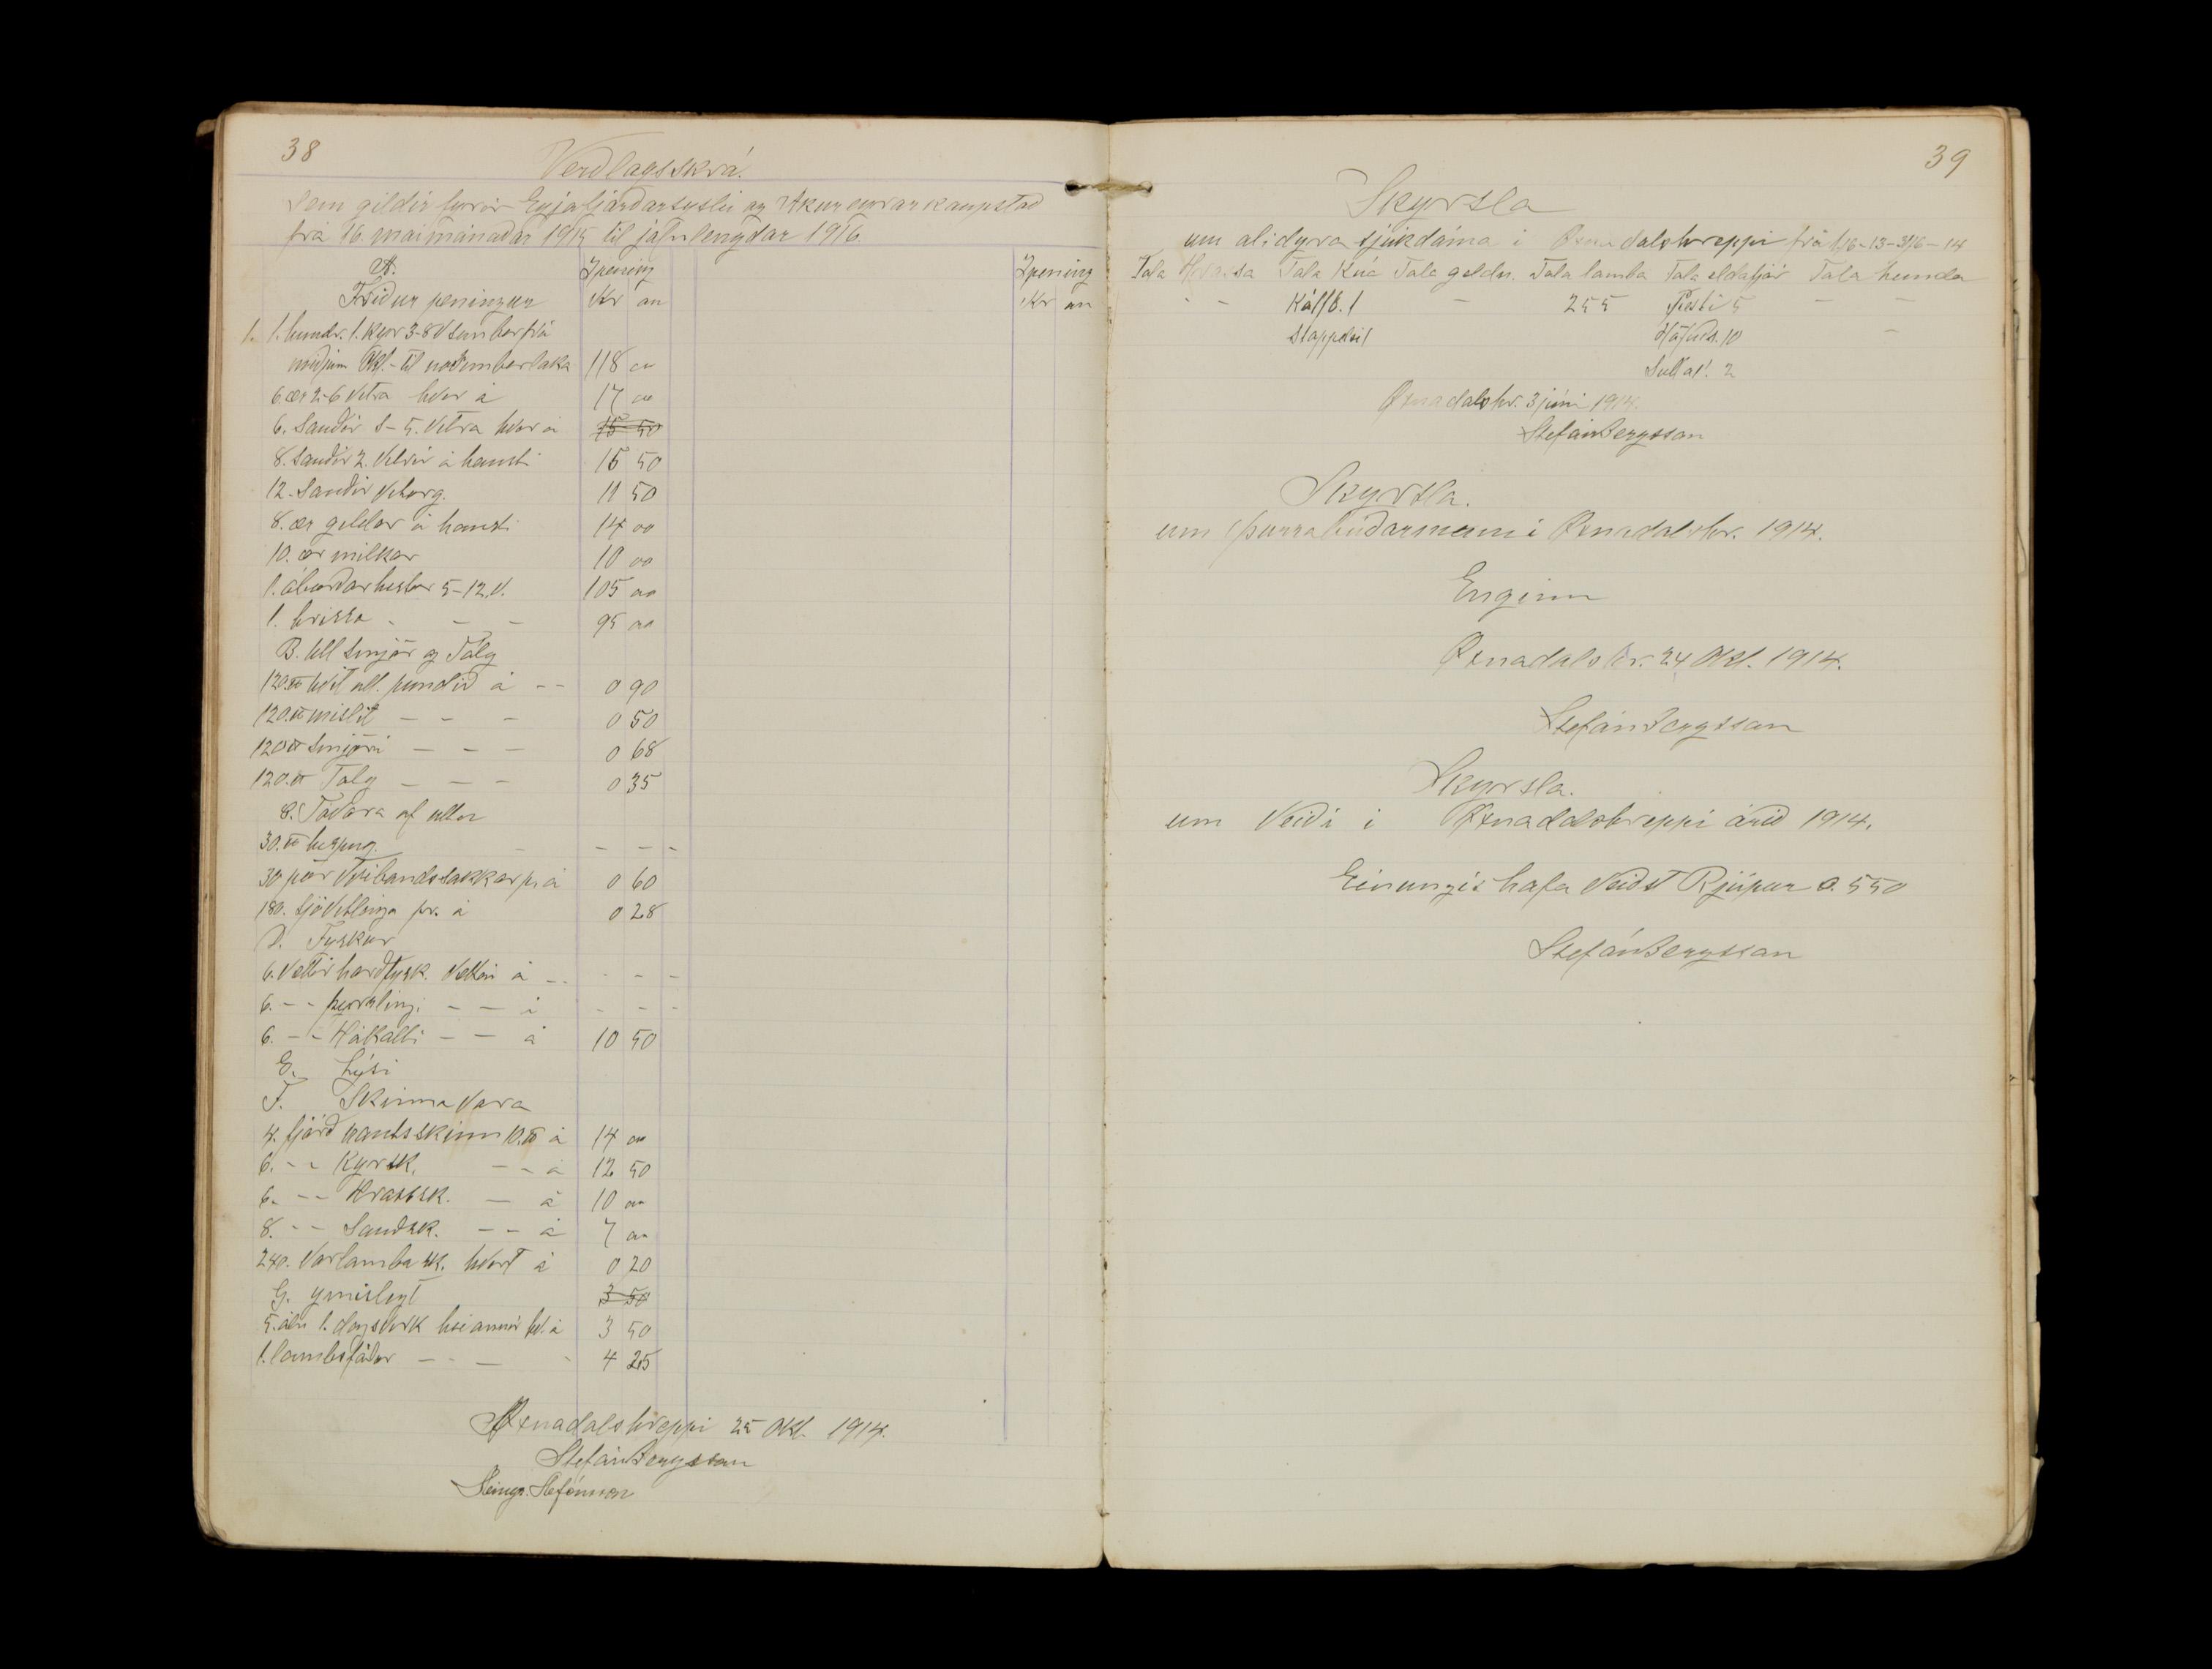 38
Verdlagsskrá.
Sem gildir fyrir Eyjafjárdarsyslu og Akureyrarkaupstad
frá 16. maimánadar 1915 til jafnlengdar 1916.
A. Ipening Ipening
Fridur peningur Kr au Kr au
1. 1. hundr. 1. Kyr 3-8 V sem ber frá
midjum Okt. - til novemberloka 118 oo
6. ær 2-6 Vetra hver á 17 oo
6. Saudir 3-5. Vetra hver á 15 50
8. Saudir 2. Vetrir á hausti 15 50
12. Saudir Veturg. 11 50
8. ær geldar á hausti 14 oo
10. ær milkar 10 oo
1. áburdarhestur 5-12. V. 105 oo
1. hrissa - - - 95 oo
B. Ull Smjör og Tólg
120. ℔ hvit ull. pundid á - - 0 90
120. ℔ mislit - - - 0 50
120 ℔ Smjöri - - - 0 68
120. ℔ Tolg - - - 0 35
8. Tóvara af ullu
30. ℔ hespug. - - -
30 pör sokkar pr á 0 60
180. Sjóvetlinga pr. á 0 28
D. Fyskur
6. Vættir hardfysk. Vættin á - - - - -
6. - - - - á - - -
6. - - Hákalli - - á 10 50
E. Lýsi
F. Skinnavara
4. fjórd nautsskinn 10. ℔ á 14 oo
6. - - Kyrsk. - - á 12 50
6. - - Hrosssk. - á 10 oo
8. - - Saudsk. - - á 7 oo
240. Vorlambask. hvert á 0 20
G. ymislegt 3 50
5. áln 1. dagsverk á 3 50
1. lambsfódur - - - 4 25
Öxnadalshreppi 25 Okt. 1914.
Stefán Bergsson
Steingr. Stefánsson
39
Skyrsla
um alidyrasjúkdóma i Öxnadalshreppi frá 1/6-13-31/6-14
Tala Hrossa Tala Kúa Tala geldn. Tala lamba Tala eldafjár Tala hunda
- - Kálfd. 1 - 255 Pesti 5 - -
Höfuds. 10 -
Sullas. 2
Öxnadalshr. 3 júni 1914.
Stefán Bergsson
Skyrsla.
um þurrabúdarmenn i Öxnadalshr. 1914.
Enginn
Öxnadalshr. 24 Okt. 1914.
Stefán Bergsson
Skyrsla.
um Veidi i Öxnadalshreppi árid 1914.
Einungis hafa Veidst Rjúpur 550
Stefán Bergsson